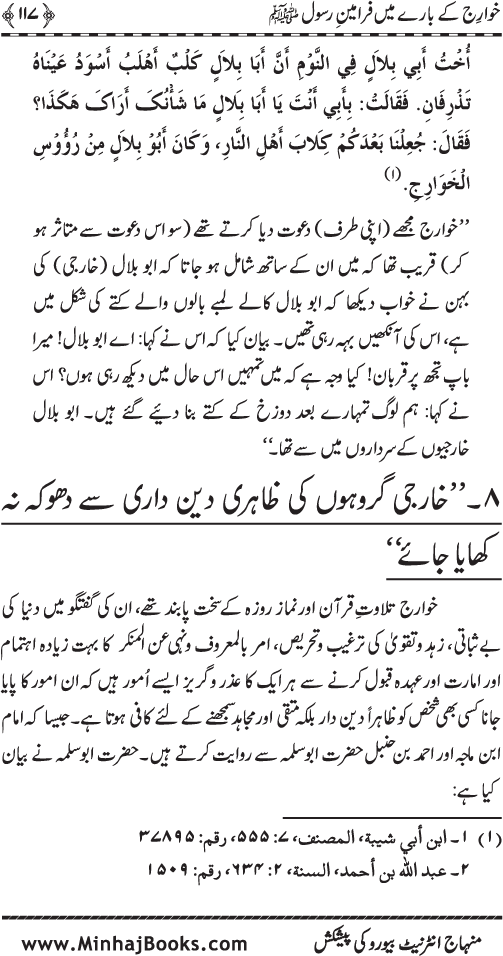 خوارج کے بارے میں فرامینِ رسول ﷺ ﴿۱۱۷﴾
أُخْتُ أَبِي بِلَالٍ فِي النَّوْمِ أَنَّ أَبَا بِلَالٍ كَلْبٌ أَهْلَبُ أَسْوَدُ عَيْنَاهُ
تَذْرِفَانِ. فَقَالَتْ: بِأَبِي أَنْتَ يَا أَبَا بَلَالٍ مَا شَأْنُكَ أَرَاكَ هَكَذَا؟
فَقَالَ: جُعِلْنَا بَعْدَكُمْ كِلَابَ أَهْلِ النَّارِ، وَكَانَ أَبُوْ بِلَالٍ مِنْ رُؤُوْسِ
الْخَوَارِجِ.(۱)
”خوارج مجھے (اپنی طرف) دعوت دیا کرتے تھے (سو اس دعوت سے متاثر ہو
کر) قریب تھا کہ میں ان کے ساتھ شامل ہو جاتا کہ ابو بلال (خارجی) کی
بہن نے خواب دیکھا کہ ابو بلال کالے لمبے بالوں والے کتے کی شکل میں
ہے، اس کی آنکھیں بہہ رہی تھیں۔ بیان کیا کہ اس نے کہا: اے ابو بلال! میرا
باپ تجھ پر قربان! کیا وجہ ہے کہ میں تمہیں اس حال میں دیکھ رہی ہوں؟ اس
نے کہا: ہم لوگ تمہارے بعد دوزخ کے کتے بنا دیئے گئے ہیں۔ ابو بلال
خارجیوں کے سرداروں میں سے تھا۔“
۸۔ ”خارجی گروہوں کی ظاہری دین داری سے دھوکہ نہ
کھایا جائے“
خوارج تلاوتِ قرآن اور نماز روزہ کے سخت پابند تھے، ان کی گفتگو میں دنیا کی
بے ثباتی، زہد وتقویٰ کی ترغیب وتحریص، امر بالمعروف ونہی عن المنکر کا بہت زیادہ اہتمام
اور امارت اور عہدہ قبول کرنے سے ہر ایک کا عذر وگریز ایسے اُمور ہیں کہ ان امور کا پایا
جانا کسی بھی شخص کو ظاہراً دین دار بلکہ متقی اور مجاہد سمجھنے کے لئے کافی ہوتا ہے۔ جیسا کہ امام
ابن ماجہ اور احمد بن حنبل حضرت ابو سلمہ سے روایت کرتے ہیں۔ حضرت ابو سلمہ نے بیان
کیا ہے:
(۱) ۱۔ ابن أبي شيبة، المصنف، ۷: ۵۵۵، رقم: ۳۷۸۹۵
۲۔ عبد الله بن أحمد، السنة، ۲: ۶۳۴، رقم: ۱۵۰۹
منہاج انٹرنیٹ بیورو کی پیشکش www.MinhajBooks.com